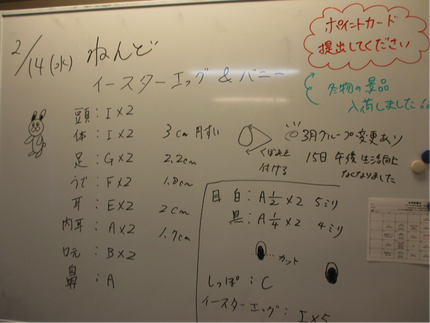 2/14(水) ねんど
イースターエッグ & バニー
ポイントカード
提出してください
景品
入荷しました
頭：I×2
体：I×2 3cm
足：G×2 2.2cm
うで：F×2 1.8cm
耳：E×2 2cm
内耳：A×2 1.7cm
口元：B×2
鼻：A
くぼみを
付ける
3月グループ変更あり
15日 午後 生活向上
なくなりました
目 白：A 1/2 ×2 5ミリ
黒：A 1/4 ×2 4ミリ
カット
しっぽ：C
イースターエッグ：I×5